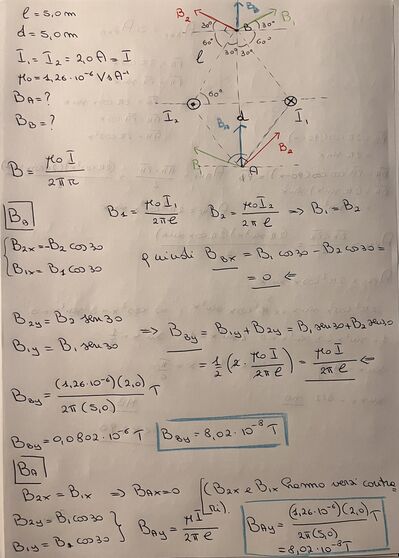 l = 5,0 m
d = 5,0 m
I₁ = I₂ = 2,0 A = I
μ₀ = 1,26 · 10⁻⁶ Vs A⁻¹
B_A = ?
B_B = ?
B₂ B_B B₁
30° B 30°
60° 30° 30° 60°
l
60°
I₂ d I₁
B₁ B_A B₂
A
B = μ₀ I / 2π r
B_B B₁ = μ₀ I₁ / 2π l B₂ = μ₀ I₂ / 2π l => B₁ = B₂
{ B₂ₓ = -B₂ cos 30
B₁ₓ = B₁ cos 30
quindi B_Bx = B₁ cos 30 - B₂ cos 30 =
= 0 ←
B₂y = B₂ sen 30
B₁y = B₁ sen 30
=> B_By = B₁y + B₂y = B₁ sen 30 + B₂ sen 30
= 1/2 (2 · μ₀ I / 2π l) = μ₀ I / 2π l ←
B_By = (1,26·10⁻⁶)(2,0) / 2π (5,0) T
B_By = 0,0802 · 10⁻⁶ T B_By = 8,02 · 10⁻⁸ T
B_A
B₂ₓ = B₁ₓ => B_Ax = 0 (B₂ₓ e B₁ₓ hanno versi
B₂y = B₁ cos 30
B₁y = B₂ cos 30 }
B_Ay = μ I / 2π l
B_Ay = (1,26·10⁻⁶)(2,0) / 2π (5,0) T
= 8,02 · 10⁻⁸ T